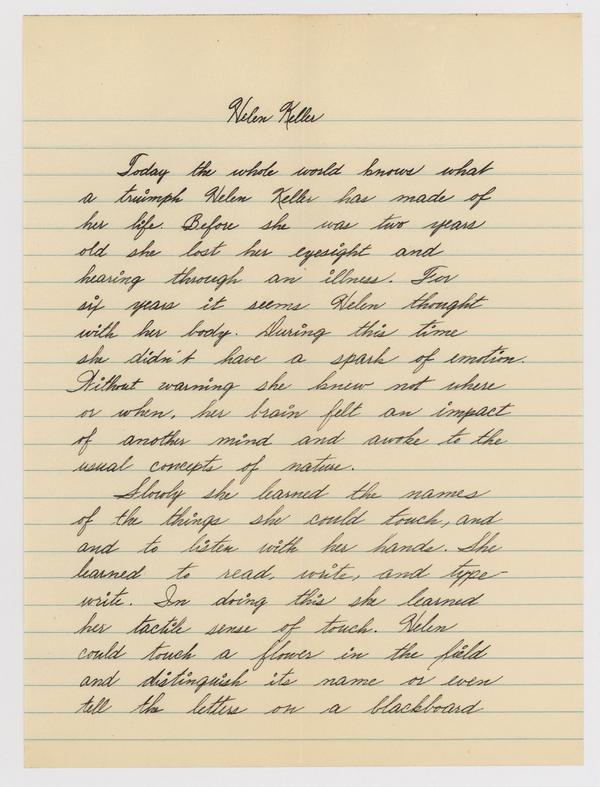 Helen Keller
Today the whole world knows what
a triumph Helen Keller has made of
her life. Before she was two years
old she lost her eyesight and
hearing through an illness. For
six years it seems Helen thought
with her body. During this time
she didn't have a spark of emotion.
Without warning she knew not where
or when, her brain felt an impact
of another mind and awoke to the
usual concepts of nature.
Slowly she learned the names
of the things she could touch, and
and to listen with her hands. She
learned to read, write, and type-
write. In doing this she learned
her tactile sense of touch. Helen
could touch a flower in the field
and distinguish its name or even
tell the letters on a blackboard